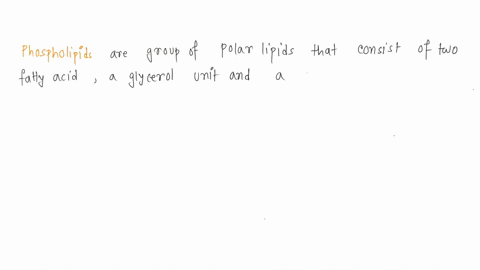 Phospholipids are group of polar lipids that consist of two
fatty acid, a glycerol unit and a